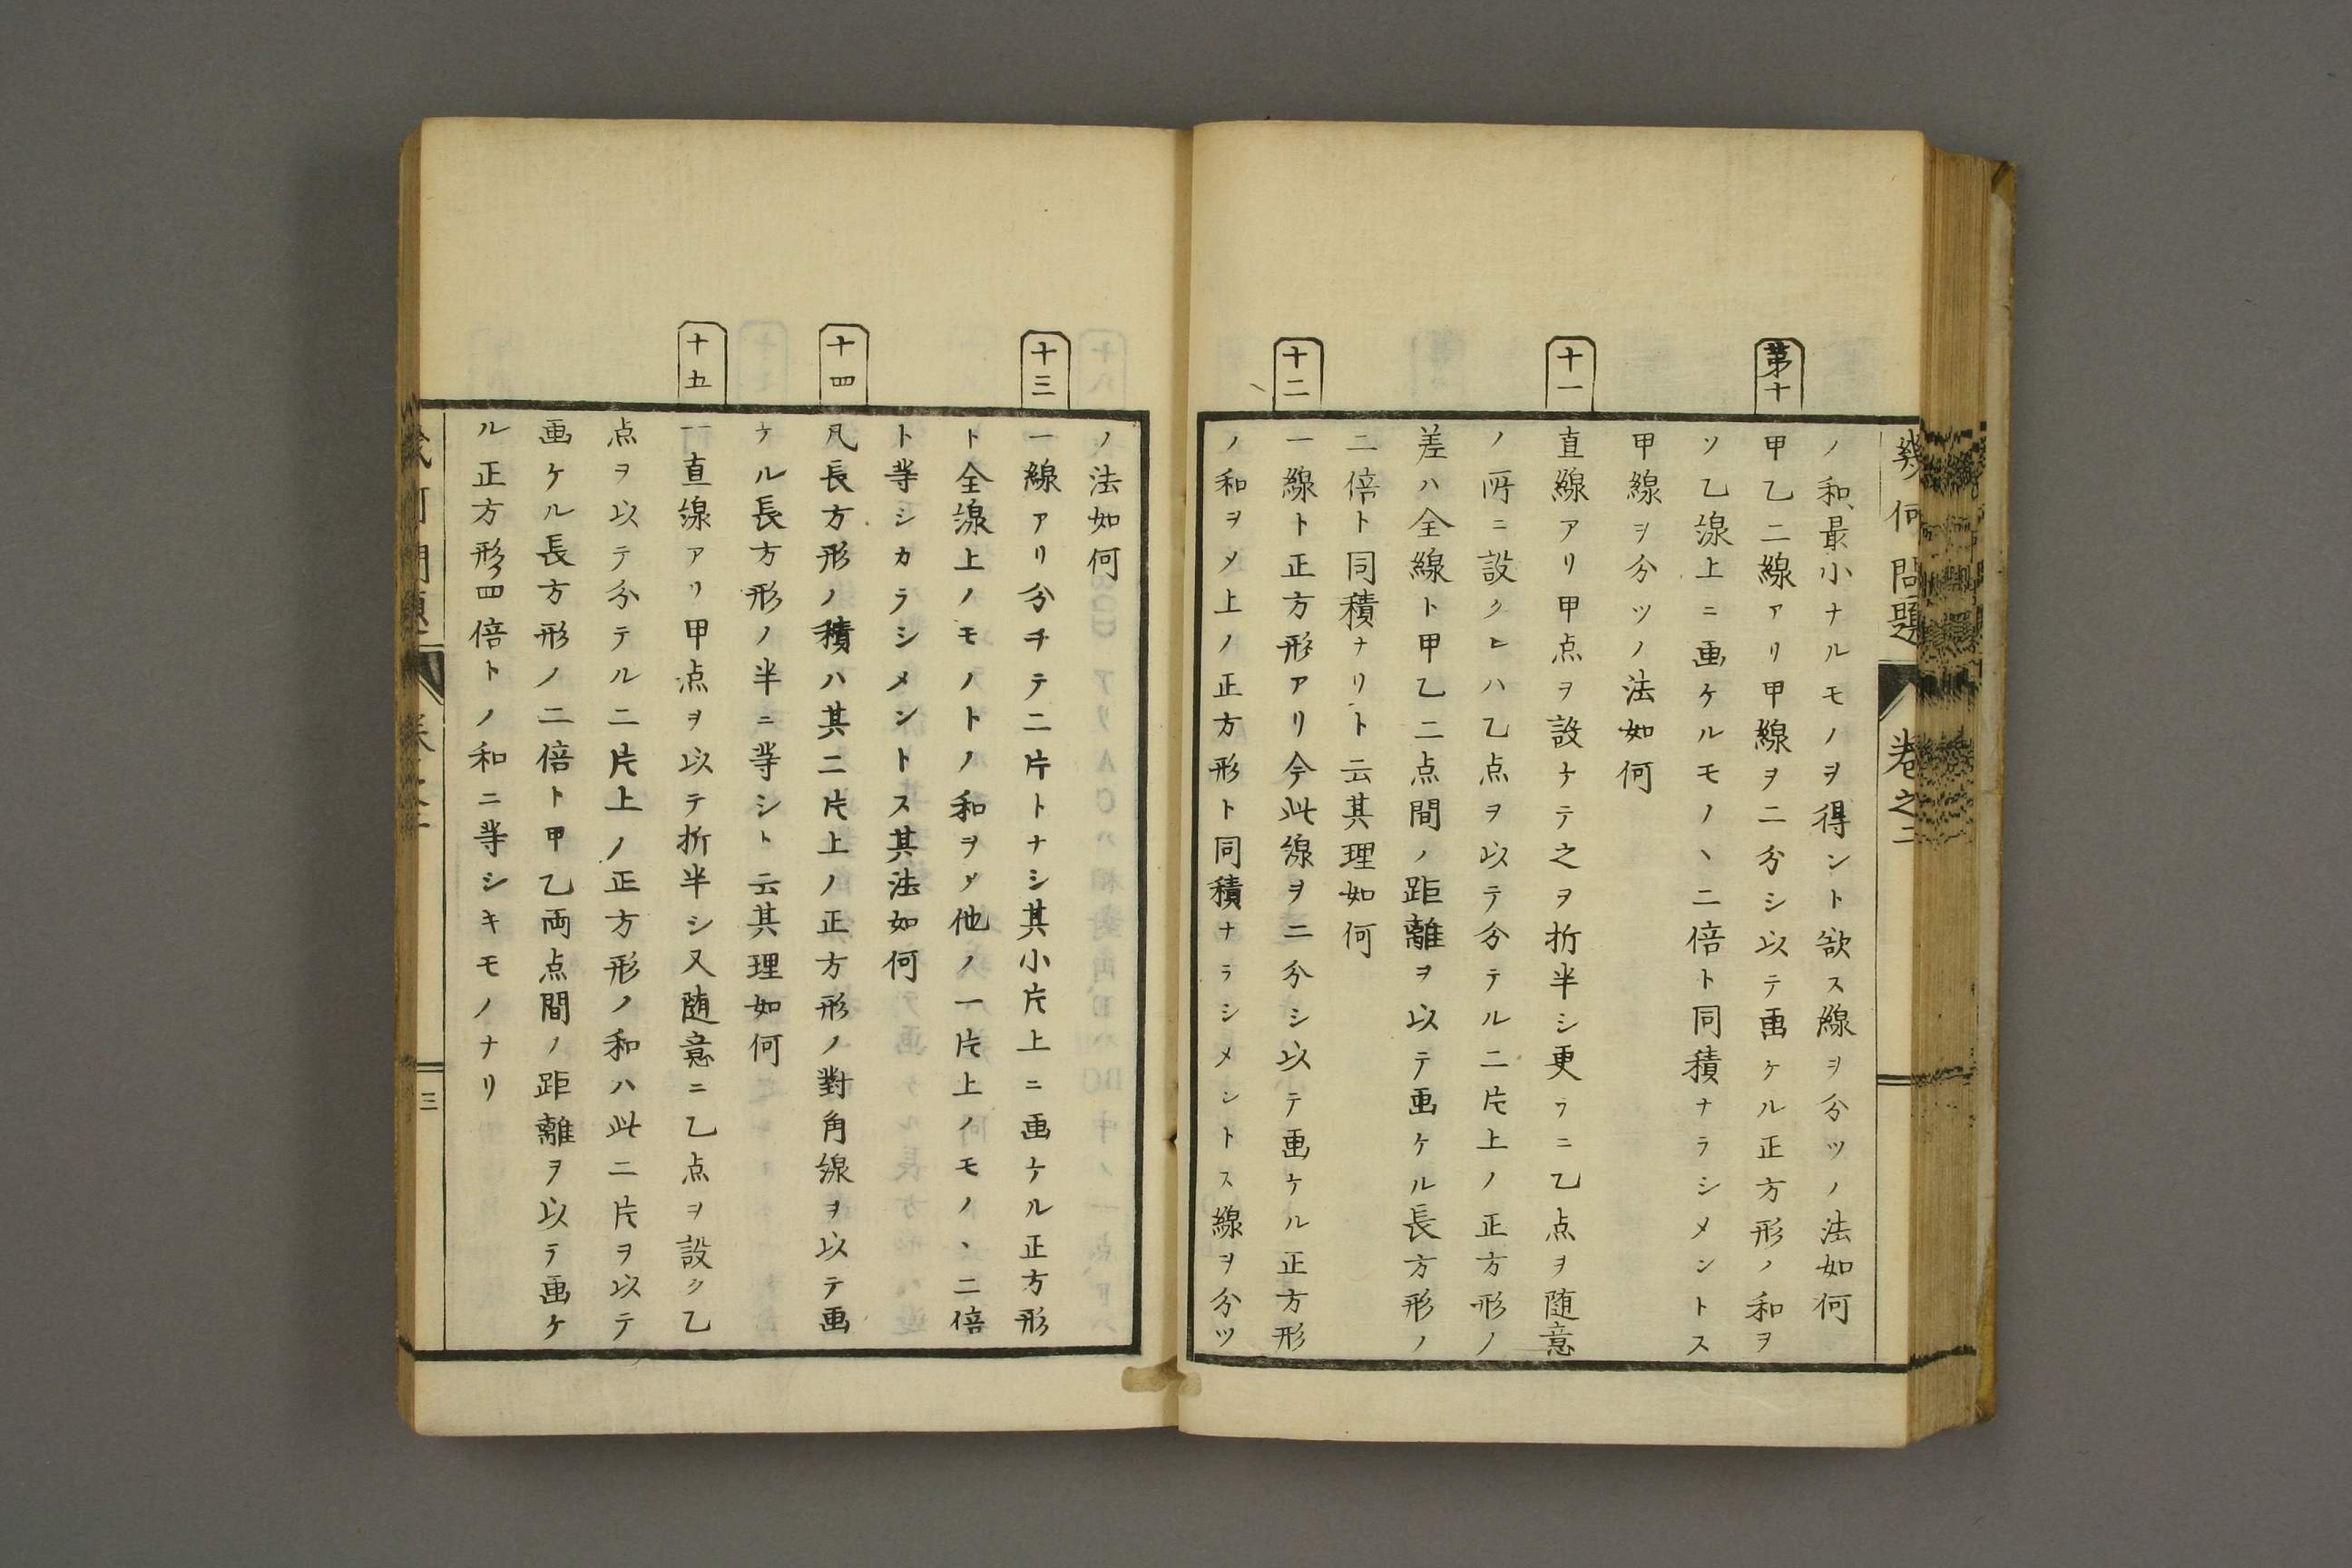 幾何問題
卷之二
ノ和最小ナルモノヲ得ント欲ス線ヲ分ツノ法如何
第十
甲乙二線アリ甲線ヲ二分シ以テ画ケル正方形ノ和ヲ
ソ乙線上ニ画ケルモノヽ二倍ト同積ナラシメントス
甲線ヲ分ツノ法如何
十一
直線アリ甲点ヲ設ケテ之ヲ折半シ更ラニ乙点ヲ随意
ノ所ニ設クヒハ乙点ヲ以テ分テル二片上ノ正方形ノ
差ハ全線ト甲乙二点間ノ距離ヲ以テ画ケル長方形ノ
二倍ト同積ナリト云其理如何
十二
一線ト正方形アリ今此線ヲ二分シ以テ画ケル正方形
ノ和ヲメ上ノ正方形ト同積ナラシメントス線ヲ分ツ
ノ法如何
十三
一線アリ分チテ二片トナシ其小片上ニ画ケル正方形
ト全線上ノモノトノ和ヲメ他ノ一片上ノモノヽ二倍
ト等シカラシメントス其法如何
十四
凡長方形ノ積ハ其二片上ノ正方形ノ對角線ヲ以テ画
ケル長方形ノ半ニ等シト云其理如何
十五
一直線アリ甲点ヲ以テ折半シ又随意ニ乙点ヲ設ク乙
点ヲ以テ分テル二片上ノ正方形ノ和ハ此二片ヲ以テ
画ケル長方形ノ二倍ト甲乙両点間ノ距離ヲ以テ画ケ
ル正方形四倍トノ和ニ等シキモノナリ
三